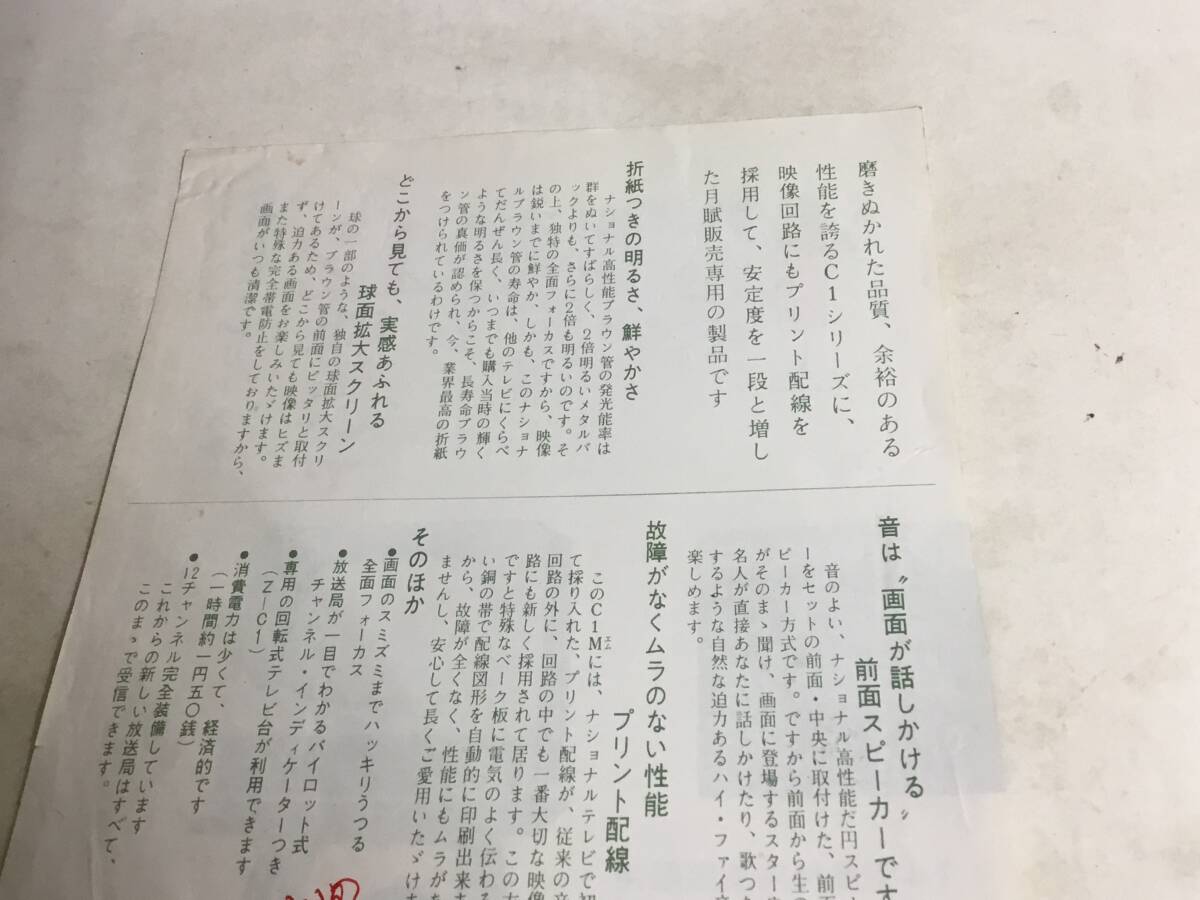 磨きぬかれた品質、余裕のある
性能を誇るC1シリーズに、
映像回路にもプリント配線を
採用して、安定度を一段と増し
た月賦販売専用の製品です
折紙つきの明るさ、鮮やかさ
ナショナル高性能ブラウン管の発光能率は
群をぬいてすばらしく、2倍明るいメタルバ
ックよりも、さらに2倍も明るいのです。そ
の上、独特の全面フォーカスですから、映像
は鋭いまでに鮮やか、しかも、このナショナ
ルブラウン管の寿命は、他のテレビにくらべ
てだんぜん長く、いつまでも購入当時の輝く
ような明るさを保つからこそ、長寿命ブラウ
ン管の真価が認められ、今、業界最高の折紙
をつけられているわけです。
どこから見ても、実感あふれる
球面拡大スクリーン
球の一部のような、独自の球面拡大スクリ
ーンが、ブラウン管の前面にピッタリと取付
けてあるため、どこから見ても映像はヒズま
ず、迫力ある画面をお楽しみいたゞけます。
また特殊な完全帯電防止をしておりますから、
画面がいつも清潔です。
音は〝画面が話しかける〟
前面スピーカーです
音のよい、ナショナル高性能だ円スピ
ーカーをセットの前面・中央に取付けた、前面
ピーカー方式です。ですから前面から生の
がそのまゝ聞け、画面に登場するスター
名人が直接あなたに話しかけたり、歌っ
するような自然な迫力あるハイ・ファイ
楽しめます。
故障がなくムラのない性能
プリント配線
このC1Mエムには、ナショナルテレビで初
て採り入れた、プリント配線が、従来の音
回路の外に、回路の中でも一番大切な映像
路にも新しく採用されて居ります。この方
ですと特殊なベーク板に電気のよく伝わる
い銅の帯で配線図形を自動的に印刷出来ま
から、故障が全くなく、性能にもムラがあ
ませんし、安心して長くご愛用いたゞけ
そのほか
●画面のスミズミまでハッキリうつる
全面フォーカス
●放送局が一目でわかるパイロット式
チャンネル・インディケーターつき
●専用の回転式テレビ台が利用できます
（Z－C1）
●消費電力は少くて、経済的です
（一時間約一円五〇銭）
●12チャンネル完全装備しています
これからの新しい放送局はすべて、
このまゝで受信できます。